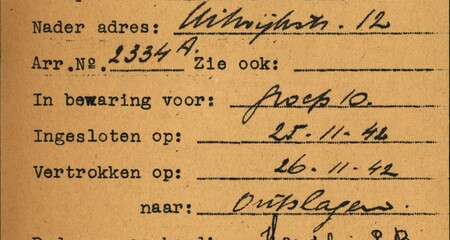 Nader adres: Uitwijkstr. 12
Arr.No. 2334 A. Zie ook:
In bewaring voor: groep 10.
Ingesloten op: 25-11-42
Vertrokken op: 26-11-42
naar: Ontslagen.